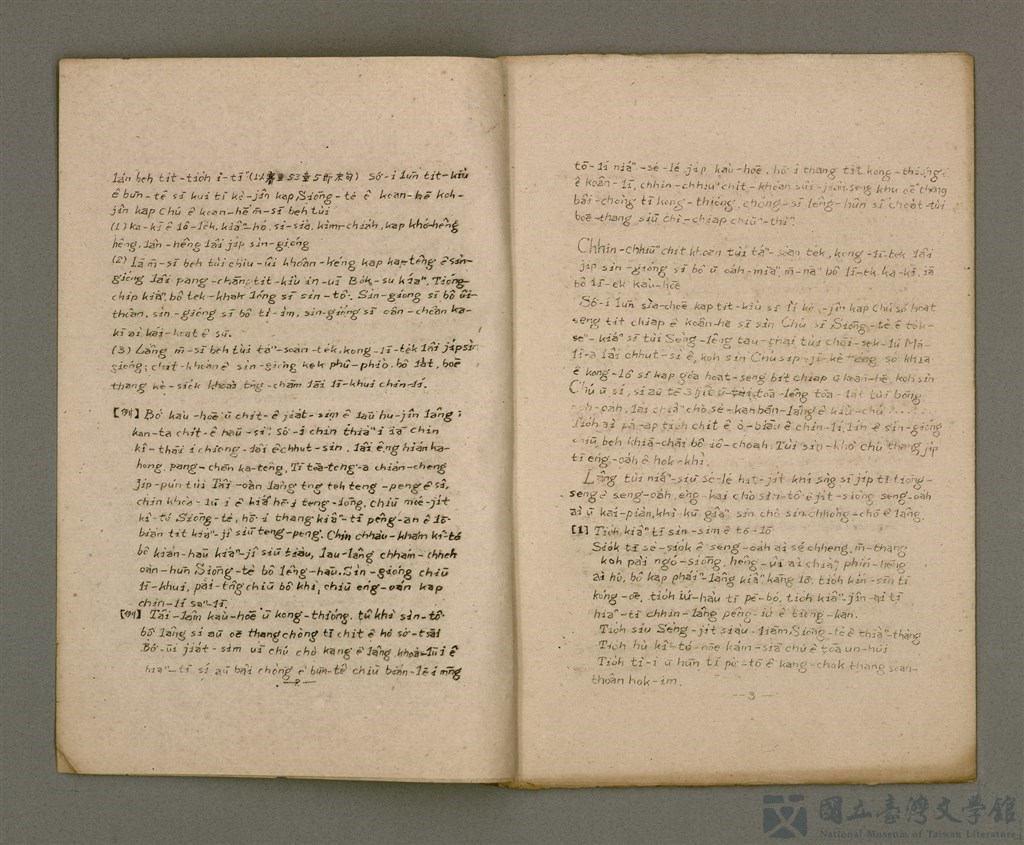 lán beh tit-tio̍h î-tī (以賽亞53章5節末句) Só-í lūn tit-kiù
ê būn-tê sī kui tī kè-jîn kap Siōng-tè ê koan-hē koh-
jîn kap Chú ê koan-hē m̄-sī beh tùi
(1) ka-kī ê lô-le̍k, kiâⁿ-hó, si-siā, kìm-chia̍h, kap khó-hēng
hêng, lán-hêng lâi ji̍p sìn-gióng
(2) Iā m̄-sī beh tùi chiu-ûi khoân-kéng kap ka-têng ê sìn-
gióng lâi pang-chān tit-kiù in-uī Bo̍k-su kiáⁿ, Tiúⁿ-
chip kiáⁿ, bô tek-khak lóng sī sìn-tô. Sìn-gióng sī bô ûi-
thoân, sìn-gióng sī bô tì-ìm, sìn-gióng sī oân-choân ka-
kī ài kái-koat ê sū.
(3) Lâng m̄-sī beh tùi táⁿ-soàn-tek, kong-lī-tek lâi ji̍p sìn
gióng; chit-khoán ê sìn-gióng kek phú-phiò, bô la̍t, boē
thang kè-siok khoà tn̂g-chām lâi lī-khui chin-lí.
【例】Bó͘ kàu-hoē ū chi̍t-ê jia̍t-sim ê lāu hū-jîn-lâng;
kan-ta chi̍t-ê hāu-siⁿ, só͘-í chin thiàⁿ i iā chin
kî-thāi i chiong-lâi ê chhut-sin. lâi êng hián ka-
hong, pang-chān ka-têng, Tī toā-tong-a chiàn-cheng
Ji̍p-pún tùi Tâi-oân lâng tng toh teng-peng ê sî,
chin khoà-lū i ê kiáⁿ hō͘ i teng-iōng, chiū mûi-ji̍t
kî-tó Siōng-tè, hō͘ i thang kiâⁿ-tī pêng-an ê lō͘-
bián tit kiâⁿ-jî siū teng-peng. Chin chhau-khám kî-tó
bô kiàn-hāu kiâⁿ-jî siū tiàu, lāu-lâng chhám-chheh
oàn-hūn Siōng-tè bô lêng-hāu. Sìn-gióng chiū
lī-khui, pài-tn̂g chiū bô khì, chiū éng-oán kap
chin-lí saⁿ-lī.
【例】Tâi-lâm kàu-hoē ū kong-thiòng, tû khì sìn-tô͘
bô͘ lâng sí āu oē thang chòng tī chit ê hó sò͘-tsāi
Bô-ūi jia̍t-sim uī chú chò kang ê lâng khoà-lū i ê
hiaⁿ-tī sí āu bâi chòng ê būn-tê chiū bián-lē i mn̄g
2
tō-lí niáⁿ-sé-lé ji̍p kàu-hoē, hō͘ i thang tit kong-thiòng ê
ê koân-lī, chhin-chhiūⁿ chit-khoán sui-jiân seng khu oē thang
bâi-chòng tī kong-thiòng, chóng-sī lêng-hûn sī choa̍t-tùi
boē-thang siū chi-chiap chiūⁿ-thiⁿ.
Chhin-chhiūⁿ chit khoán tùi táⁿ-soàn-tek, kong-lī-tek lâi
ji̍p sìn-gióng sī bô ū oa̍h-miā, m̄-nā bô lī-ek ka-kī, iā
bô lī-ek kàu-hoē
Só͘-í lūn sià-choē kap tit-kiù sī lí kò-jîn kap Chú só͘ hoat
seng tit chiap ê koân-hē sī sìn Chú sī Siōng-tè ê to̍k-
seⁿ-kiáⁿ sī tùi Sèng-lêng tau-thai tùi chāi-sek-lú Má-
lī-a lâi chhut-sì ê, koh sìn Chú sip-jī-kè
ê kong-lô sī kap góa hoat-seng tit chiap ê koan-hē, koh sìn
Chú ū sí, sí āu tē 3 ji̍t ū tùi toā-lêng toā-la̍t tùi bōng
Tio̍h ài pó-ap tio̍h chit ê ò-biāu ê chin-lí, lán ê sìn-gióng
chiū beh khiā-chāi bô iô-choah. Tùi sìn-khò chú thang ji̍p
tī éng-oa̍h ê hok-khì.
Lâng tùi niáⁿ-siū sé-lé hit-ji̍t khí sǹg sī ji̍p tī tiong-
seng ê seng-oa̍h, eng-kai chò sìn-tô͘ ê ji̍t-siông seng-oa̍h
ài ū kái-piàn, khì kū giâⁿ sin chò sin chhòng-chō ê lâng.
【1】Tio̍h kiâⁿ tī sìn-sim ê tō-lō͘
Sio̍k tī sè-sio̍k ê seng-oa̍h ài sé chheng, m̄-thang
koh pài ngó͘-siōng, hêng-ūi ài chiàⁿ, phín-hēng
ài hó, bô kap pháiⁿ-lâng kiâⁿ kāng lō͘, tio̍h kín-sīn tī
kóng-oē, tio̍h iú-hàu tī pē-bó, tio̍h kiâⁿ-jîn-ài tī
hiaⁿ-tī chhin-lâng pêng-iú ê tiong-kan.
Tio̍h siú Sèng-ji̍t siàu-liām Siōng-tè ê thiàⁿ-thàng
Tio̍h hù kî-tó-hōe kám-siā chú ê toā un-huī
Tio̍h tī-i ū hūn tī pò͘-tō ê kang-chok thang soan-
thoân hok-im.
3
國立臺灣文學館
National Museum of Taiwan Literature